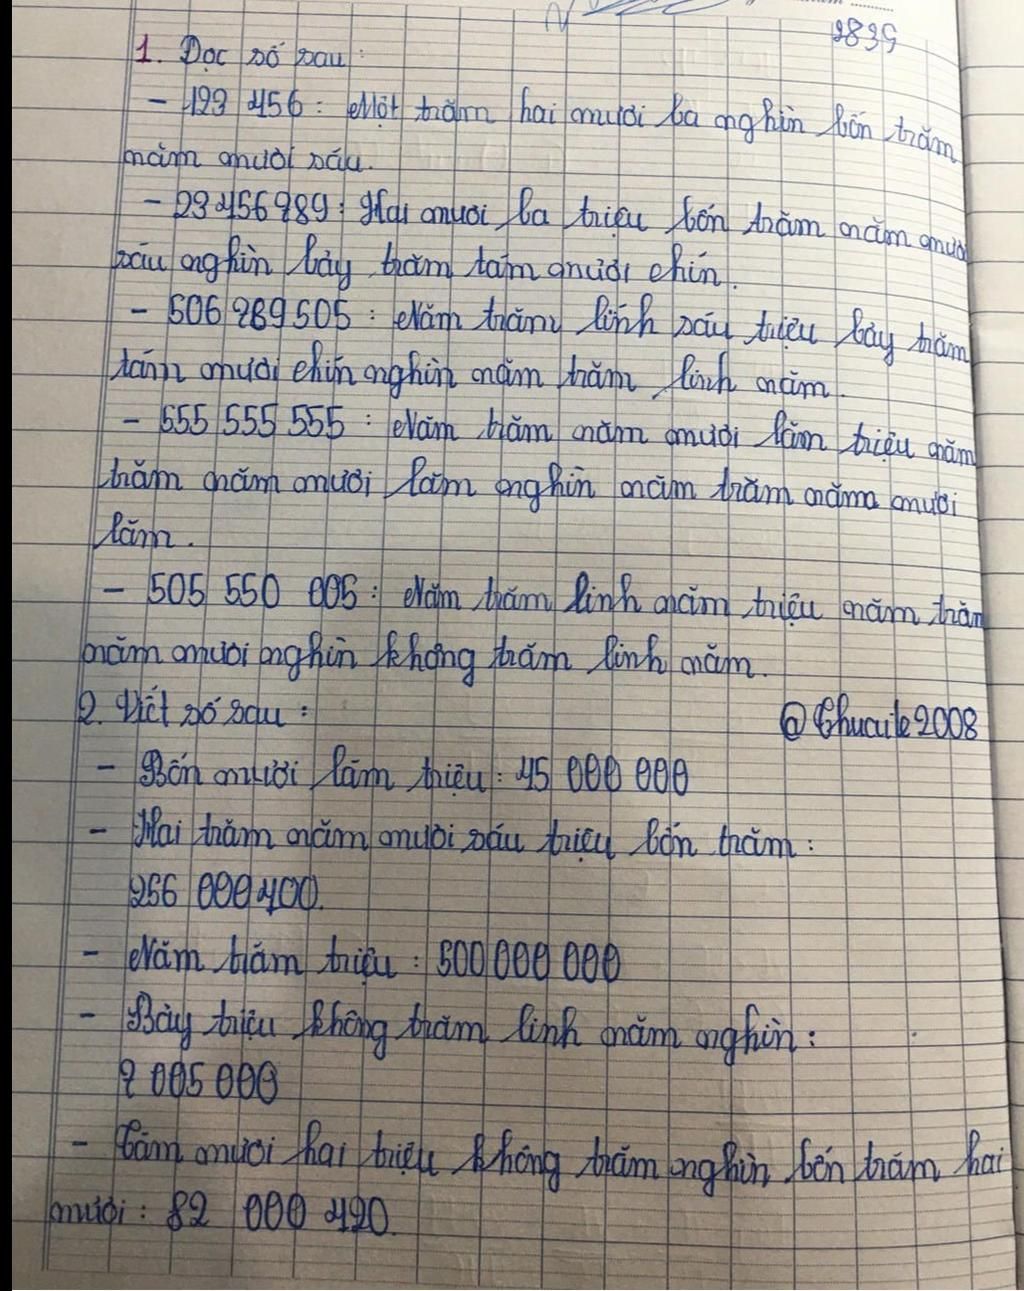 2839
1. Đọc số sau:
- 123 456: Một trăm hai mươi ba nghìn bốn trăm
năm mươi sáu.
- 23 456 789: Hai mươi ba triệu bốn trăm năm mươi
sáu nghìn bảy trăm tám mươi chín.
- 506 789 505: Năm trăm linh sáu triệu bảy trăm
tám mươi chín nghìn năm trăm linh năm.
- 555 555 555: Năm trăm năm mươi lăm triệu năm
trăm năm mươi lăm nghìn năm trăm năm mươi
lăm.
- 505 550 005: Năm trăm linh năm triệu năm trăm
năm mươi nghìn không trăm linh năm.
2. Viết số sau:
@Chucute2008
- Bốn mươi lăm triệu: 45 000 000
- Hai trăm năm mươi sáu triệu bốn trăm:
256 000 400.
- Năm trăm triệu: 500 000 000
- Bảy triệu không trăm linh năm nghìn:
7 005 000
- Tám mươi hai triệu không trăm nghìn bốn trăm hai
mươi: 82 000 420.